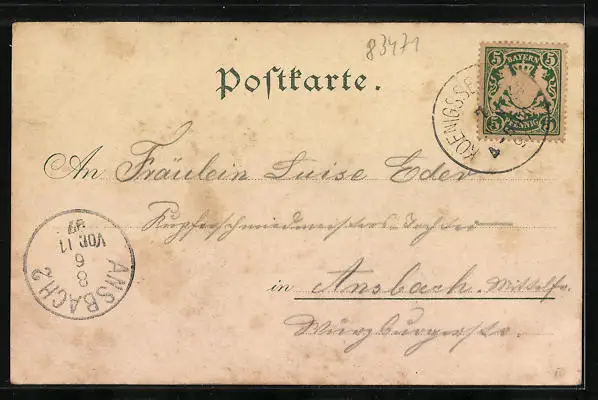 83471
Postkarte.
5 BAYERN 5
5 PFENNIG 5
KOENIGSSEE
An Fräulein Luise Eder
Kupferschmiedmeisters-Tochter
in Ansbach. Mittelfr.
Würzburgerstr.
ANSBACH 2
8
6
VOR. 11
97